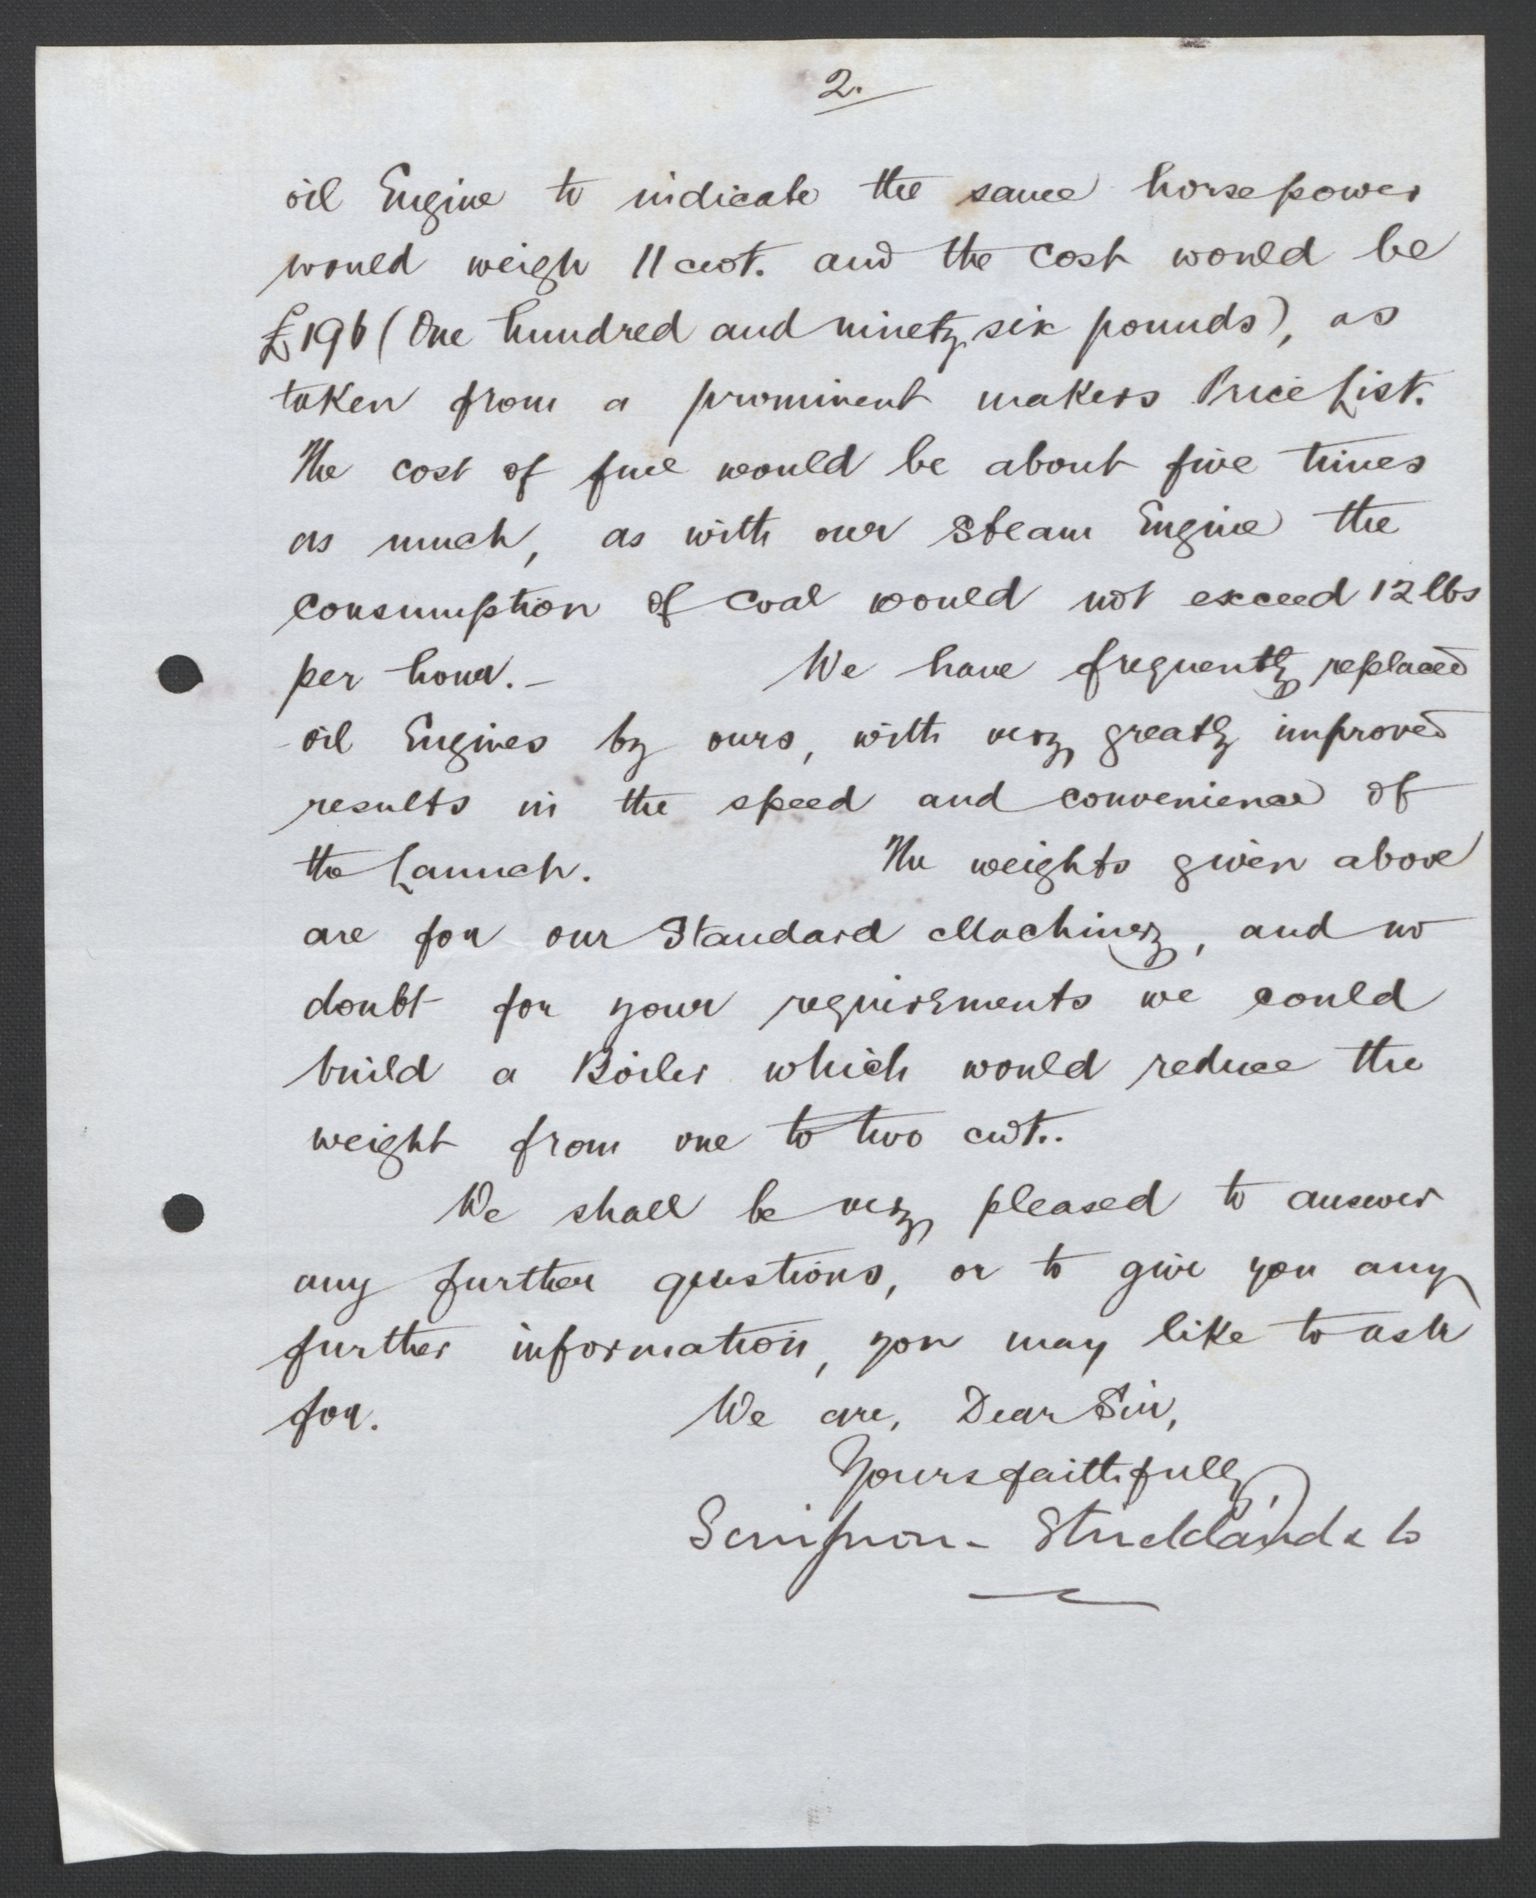 2.
oil Engine to indicate the same horsepower
would weigh 11 cwt. and the cost would be
£196 (One hundred and ninety six pounds), as
taken from a prominent makers Price List.
The cost of fuel would be about five times
as much, as with our Steam Engine the
consumption of coal would not exceed 12 lbs
per hour.— We have frequently replaced
oil Engines by ours, with very greatly improved
results in the speed and convenience of
the Launch. The weights given above
are for our Standard Machinery, and no
doubt for your requirements we could
build a Boiler which would reduce the
weight from one to two cwt..
We shall be very pleased to answer
any further questions, or to give you any
further information, you may like to ask
for. We are, Dear Sir,
Yours faithfully,
Simpson - Strickland & Co